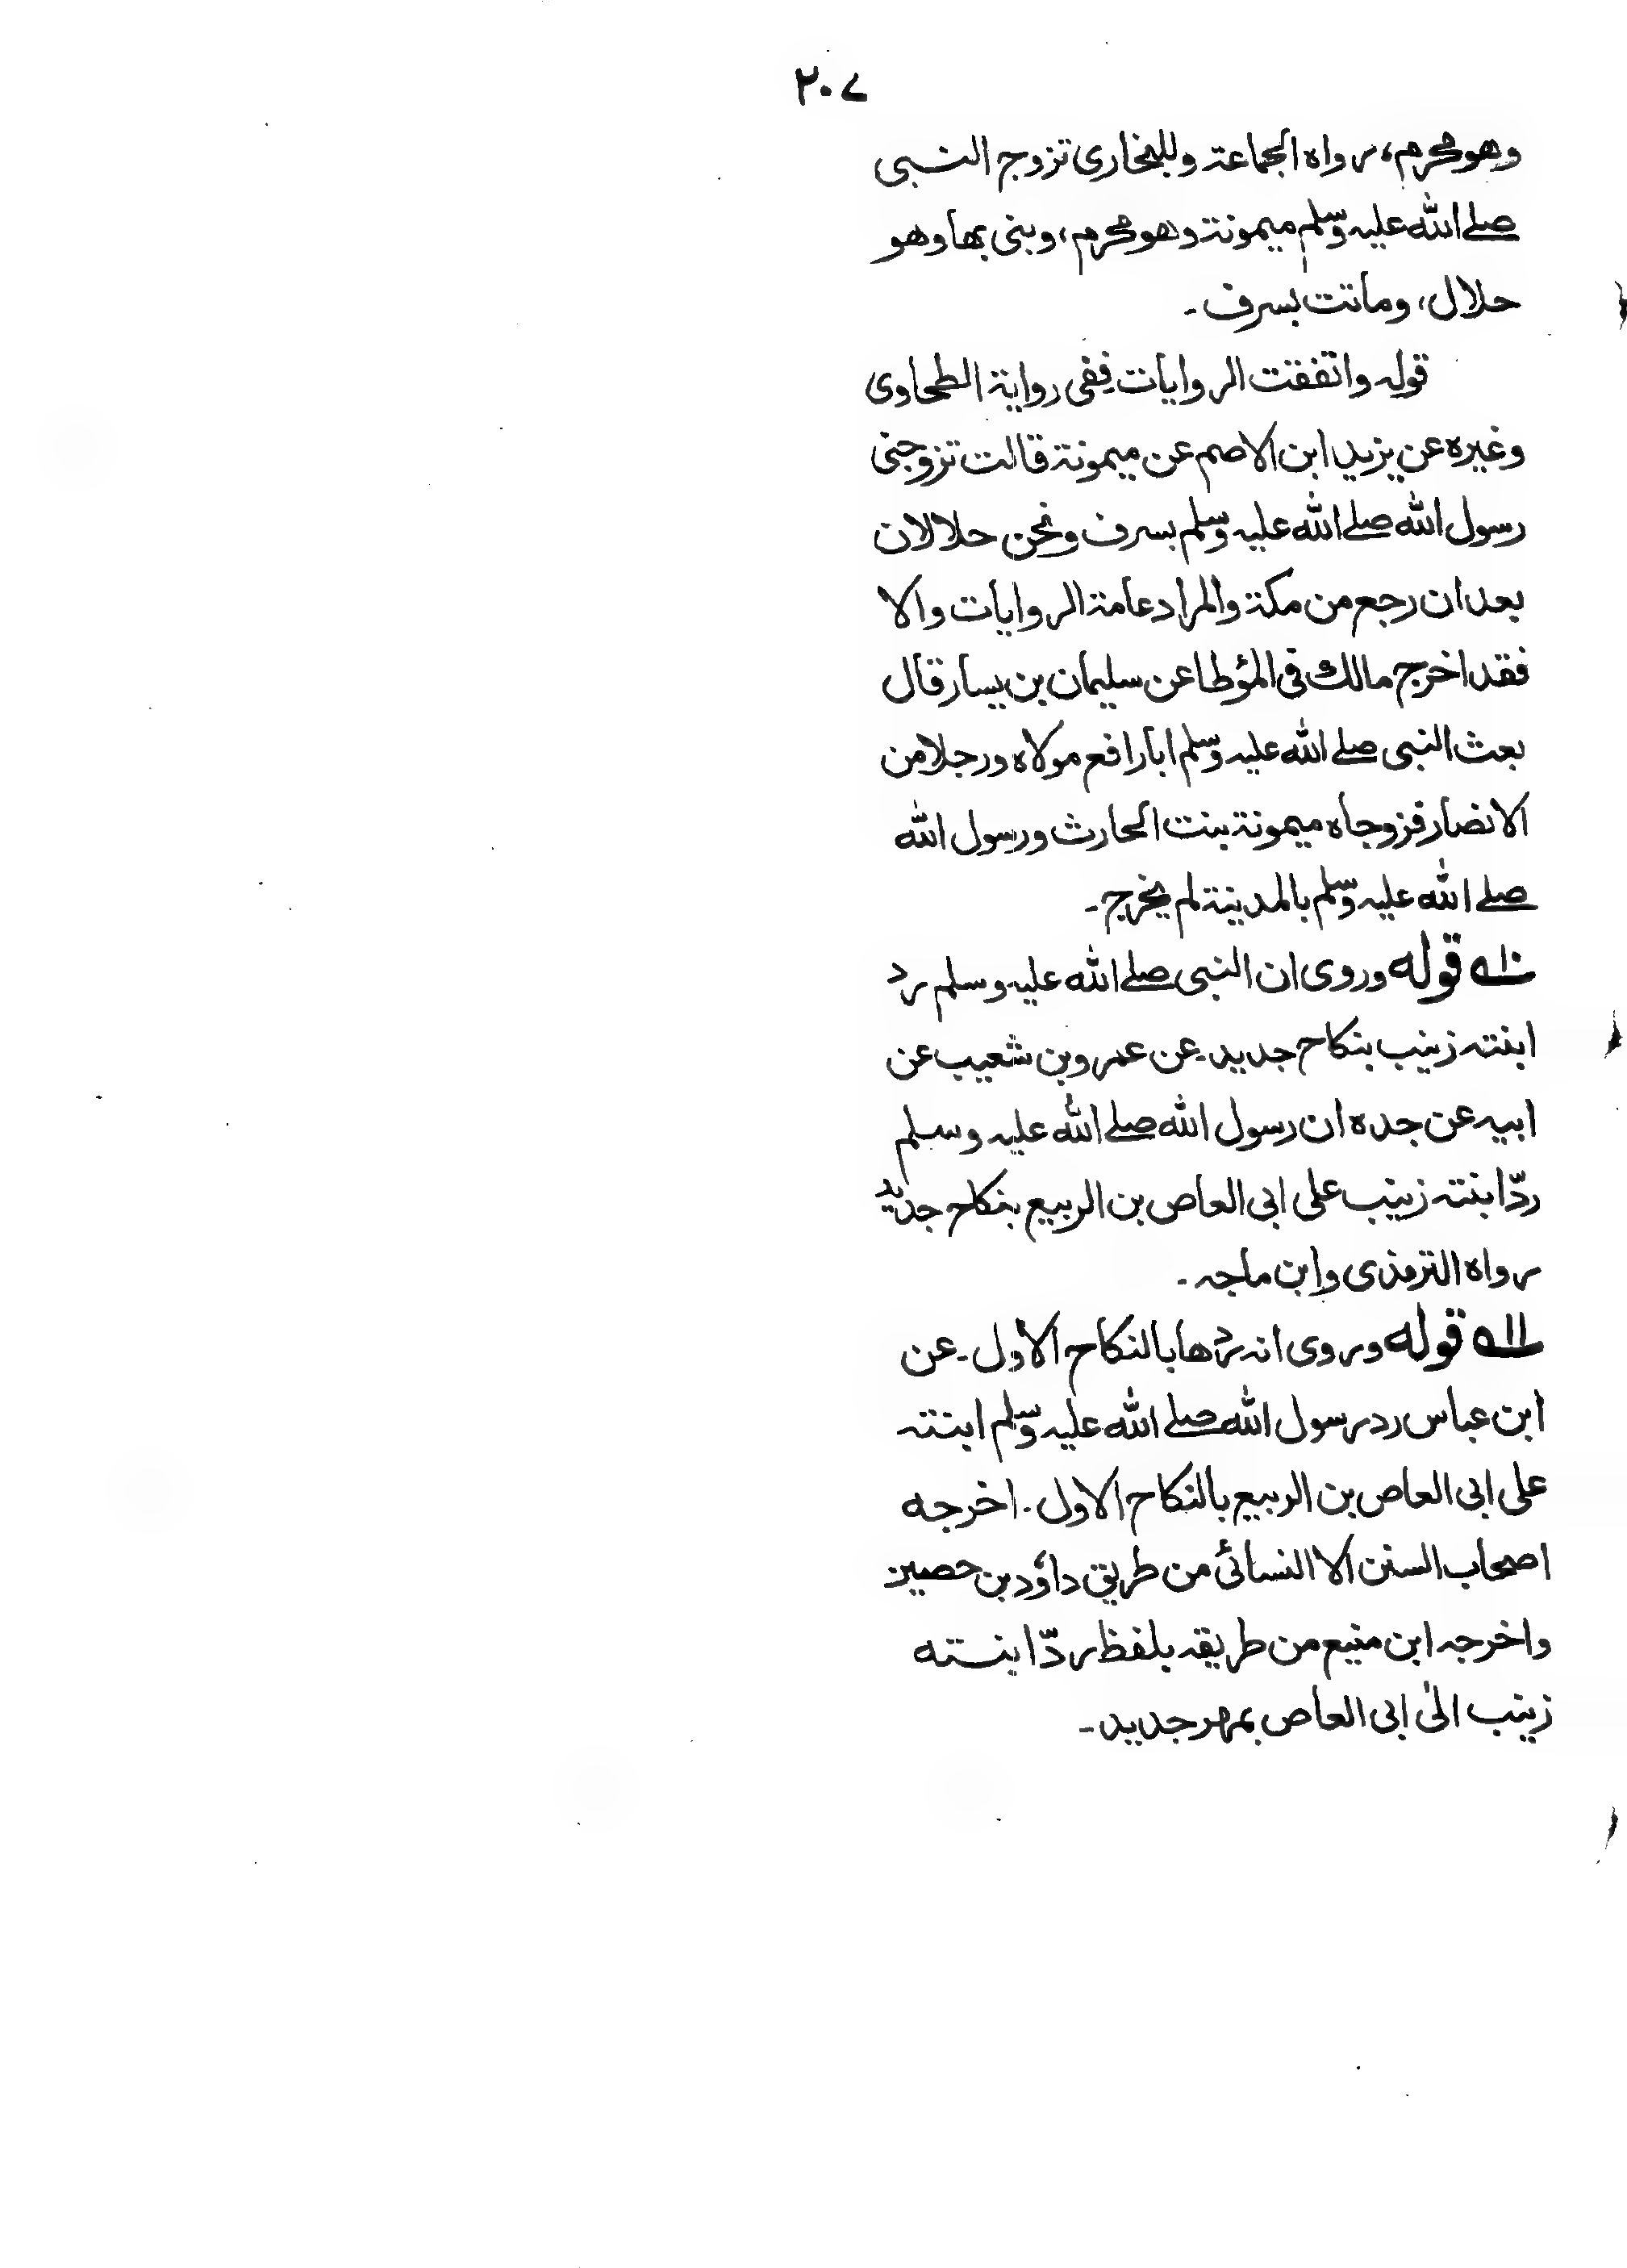 ٢٠٧
وهو محرم، رواه الجماعة وللبخاری تزوج النبی
صلے الله علیہ وسلم میمونة وهو محرم، وبنی بها وهو
حلال، وماتت بسرف۔
قولہ واتفقت الروایات ففی روایة الطحاوی
وغیره عن یزید ابن الاصم عن میمونة قالت تزوجنی
رسول الله صلے الله علیہ وسلم بسرف ونحن حلالان
بعد ان رجع من مکة والمراد عامة الروایات والا
فقد اخرج مالك فی المؤطا عن سلیمان بن یسار قال
بعث النبی صلے الله علیہ وسلم ابا رافع مولاه ورجلا من
الانصار فزوجاه میمونة بنت الحارث ورسول الله
صلے الله علیہ وسلم بالمدینة لم یخرج۔
۱۰ قوله وروی ان النبی صلے الله علیہ وسلم رد
ابنتہ زینب بنکاح جدید۔ عن عمرو بن شعیب عن
ابیہ عن جده ان رسول الله صلے الله علیہ وسلم
ردّ ابنتہ زینب علی ابی العاص بن الربیع بنکاح جدید
رواه الترمذی وابن ماجہ۔
۱۱ قوله وروی انہ ردها بالنکاح الاول۔ عن
ابن عباس رد رسول الله صلے الله علیہ وسلم ابنتہ
علی ابی العاص بن الربیع بالنکاح الاول۔ اخرجه
اصحاب السنن الا النسائی من طریق داؤد بن حصین
واخرجہ ابن منیع من طریقہ بلفظ ردّ ابنته
زینب الیٰ ابی العاص بمهر جدید۔